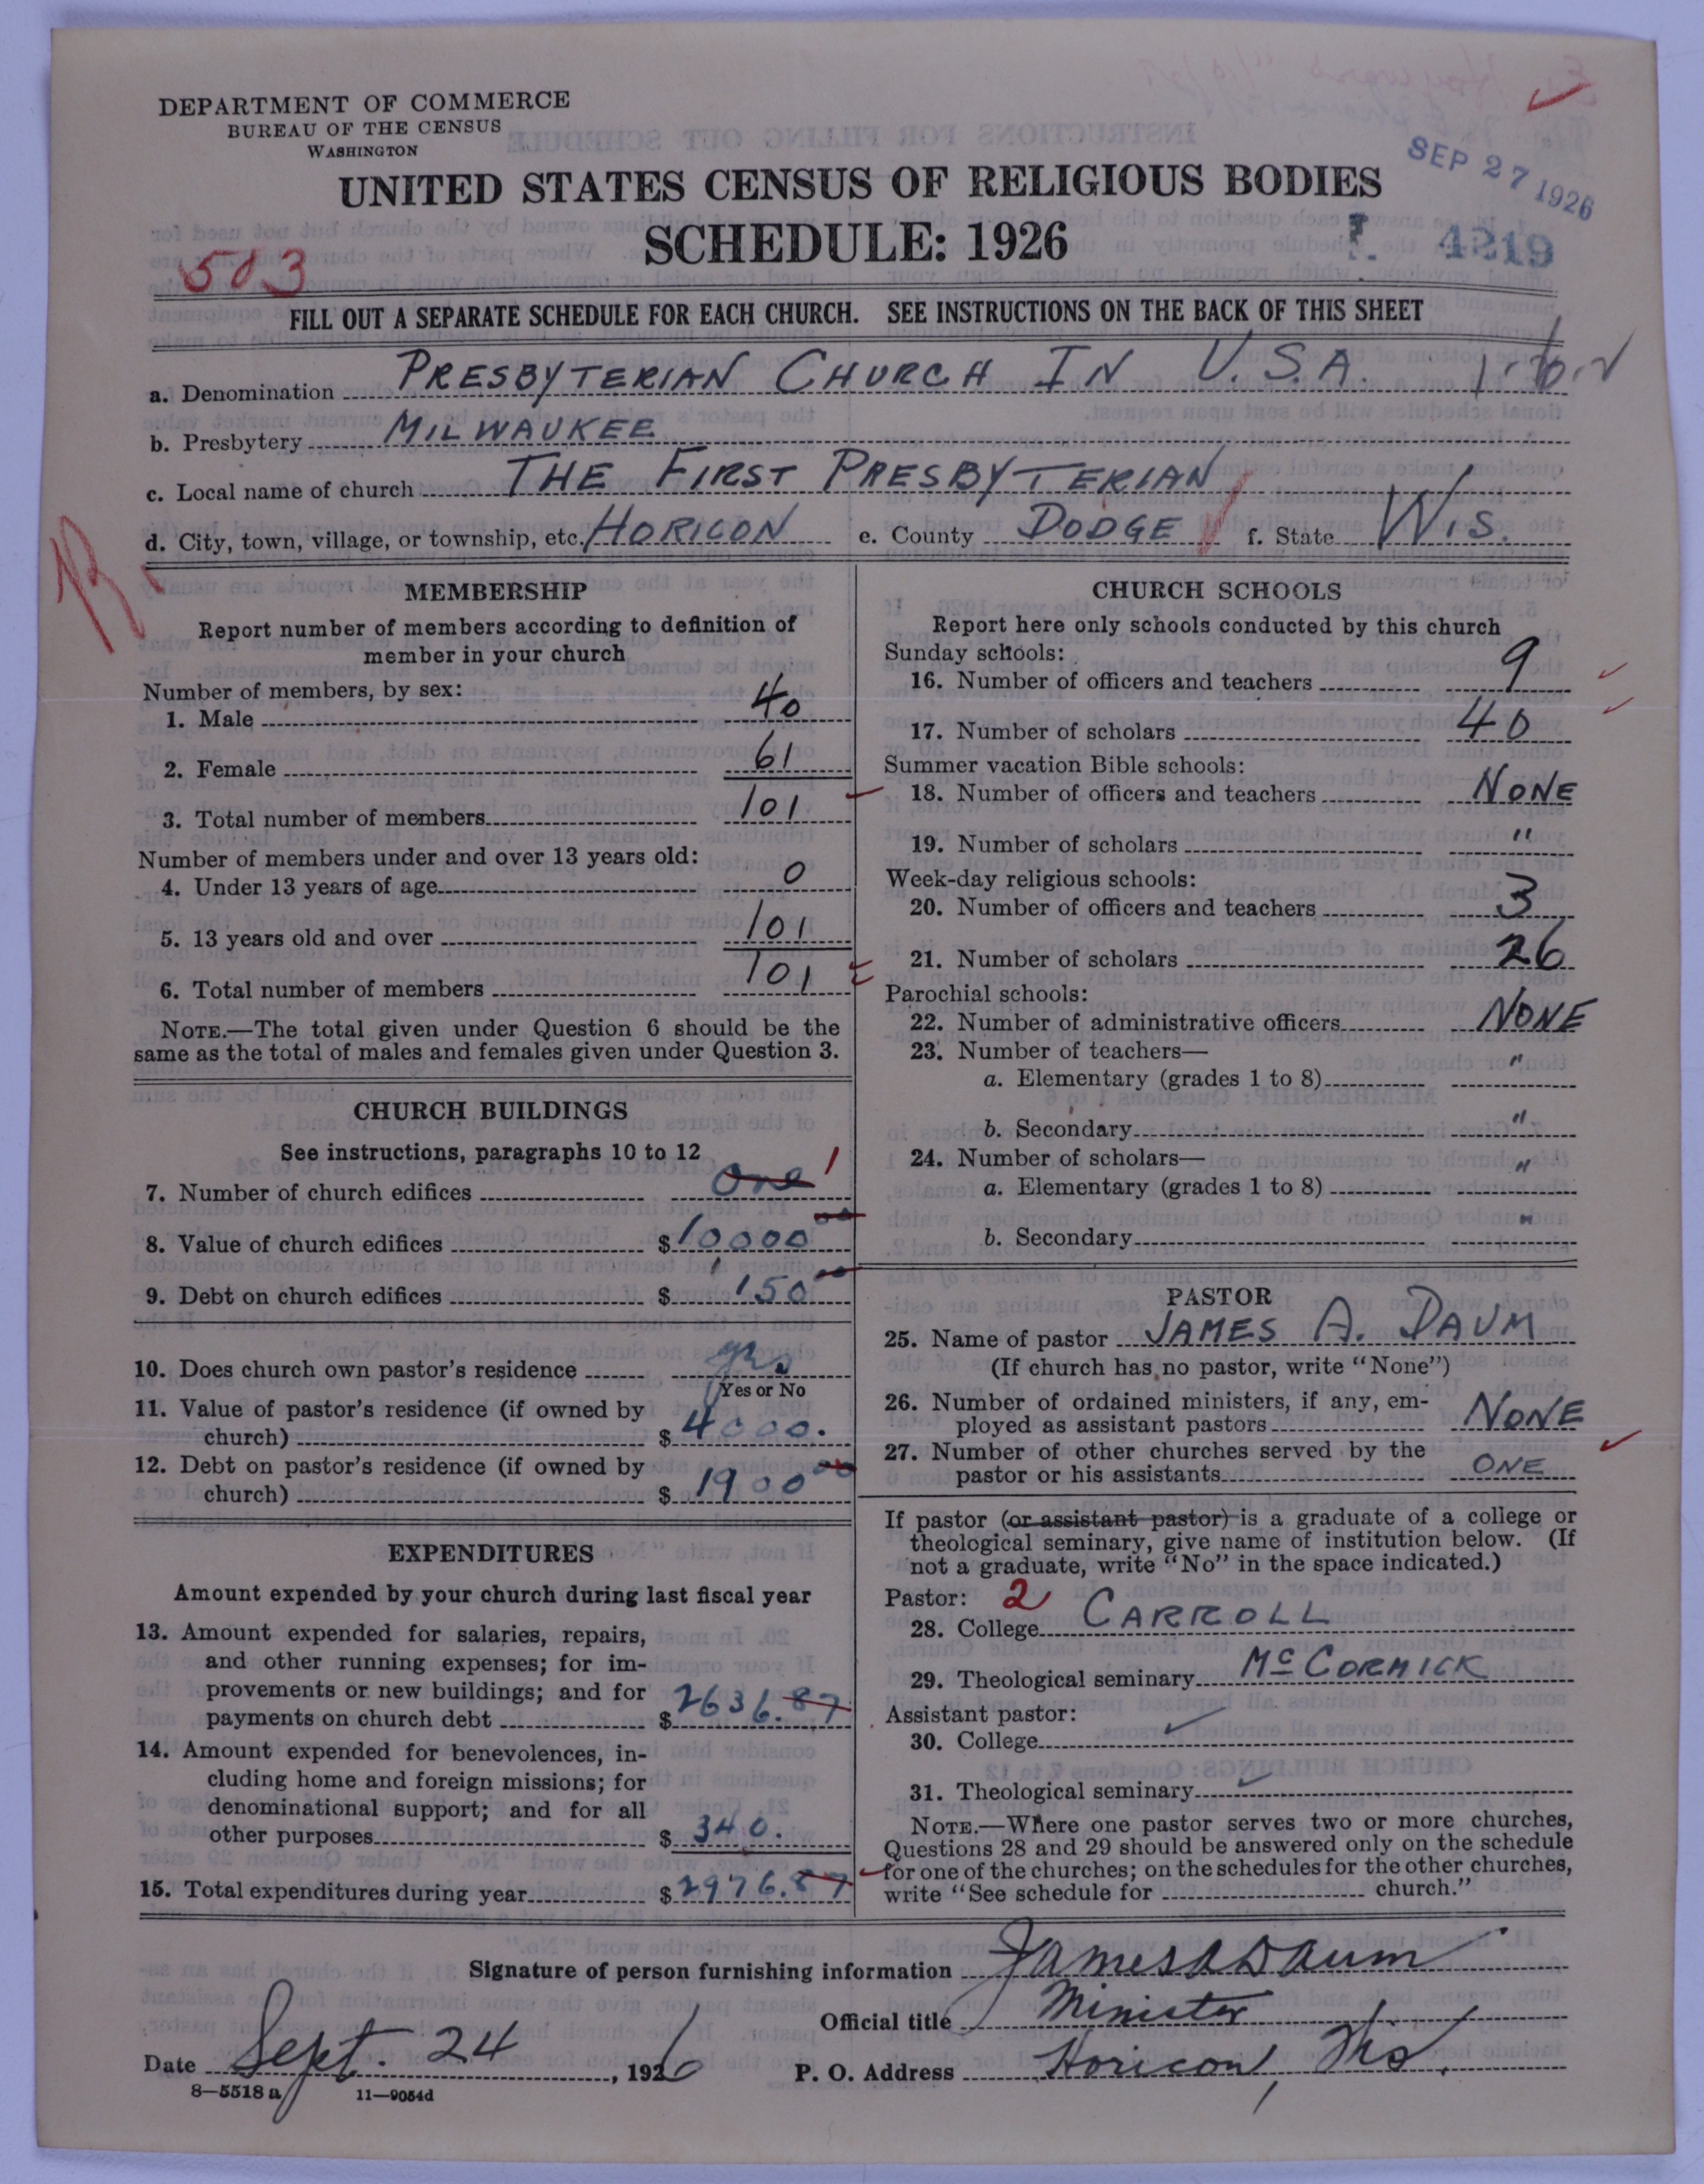 DEPARTMENT OF COMMERCE
BUREAU OF THE CENSUS
WASHINGTON
UNITED STATES CENSUS OF RELIGIOUS BODIES
SCHEDULE: 1926
SEP 27 1926
4219
503
FILL OUT A SEPARATE SCHEDULE FOR EACH CHURCH. SEE INSTRUCTIONS ON THE BACK OF THIS SHEET
a. Denomination PRESBYTERIAN CHURCH IN U.S.A.
b. Presbytery MILWAUKEE
c. Local name of church THE FIRST PRESBYTERIAN
d. City, town, village, or township, etc. HORICON e. County DODGE f. State WIS.
MEMBERSHIP
Report number of members according to definition of
member in your church
Number of members, by sex:
1. Male 40
2. Female 61
3. Total number of members 101
Number of members under and over 13 years old:
4. Under 13 years of age 0
5. 13 years old and over 101
6. Total number of members 101
NOTE.—The total given under Question 6 should be the
same as the total of males and females given under Question 3.
CHURCH BUILDINGS
See instructions, paragraphs 10 to 12
7. Number of church edifices One 1
8. Value of church edifices $10000 00
9. Debt on church edifices $ 1150 00
10. Does church own pastor's residence yes
Yes or No
11. Value of pastor's residence (if owned by
church) $4000.
12. Debt on pastor's residence (if owned by
church) $1900 00
EXPENDITURES
Amount expended by your church during last fiscal year
13. Amount expended for salaries, repairs,
and other running expenses; for im-
provements or new buildings; and for
payments on church debt $2636.87
14. Amount expended for benevolences, in-
cluding home and foreign missions; for
denominational support; and for all
other purposes $340.
15. Total expenditures during year $2976.87
CHURCH SCHOOLS
Report here only schools conducted by this church
Sunday schools:
16. Number of officers and teachers 9
17. Number of scholars 40
Summer vacation Bible schools:
18. Number of officers and teachers NONE
19. Number of scholars "
Week-day religious schools:
20. Number of officers and teachers 3
21. Number of scholars 26
Parochial schools:
22. Number of administrative officers NONE
23. Number of teachers—
a. Elementary (grades 1 to 8) "
b. Secondary "
24. Number of scholars—
a. Elementary (grades 1 to 8) "
b. Secondary "
PASTOR
25. Name of pastor JAMES A. DAUM
(If church has no pastor, write "None")
26. Number of ordained ministers, if any, em-
ployed as assistant pastors NONE
27. Number of other churches served by the
pastor or his assistants ONE
If pastor (or assistant pastor) is a graduate of a college or
theological seminary, give name of institution below. (If
not a graduate, write "No" in the space indicated.)
Pastor: 2
28. College CARROLL
29. Theological seminary McCORMICK
Assistant pastor:
30. College
31. Theological seminary
NOTE.—Where one pastor serves two or more churches,
Questions 28 and 29 should be answered only on the schedule
for one of the churches; on the schedules for the other churches,
write "See schedule for church."
Signature of person furnishing information James A Daum
Official title Minister
Date Sept. 24, 1926 P. O. Address Horicon, Wis.
8—5518 a 11—9054d